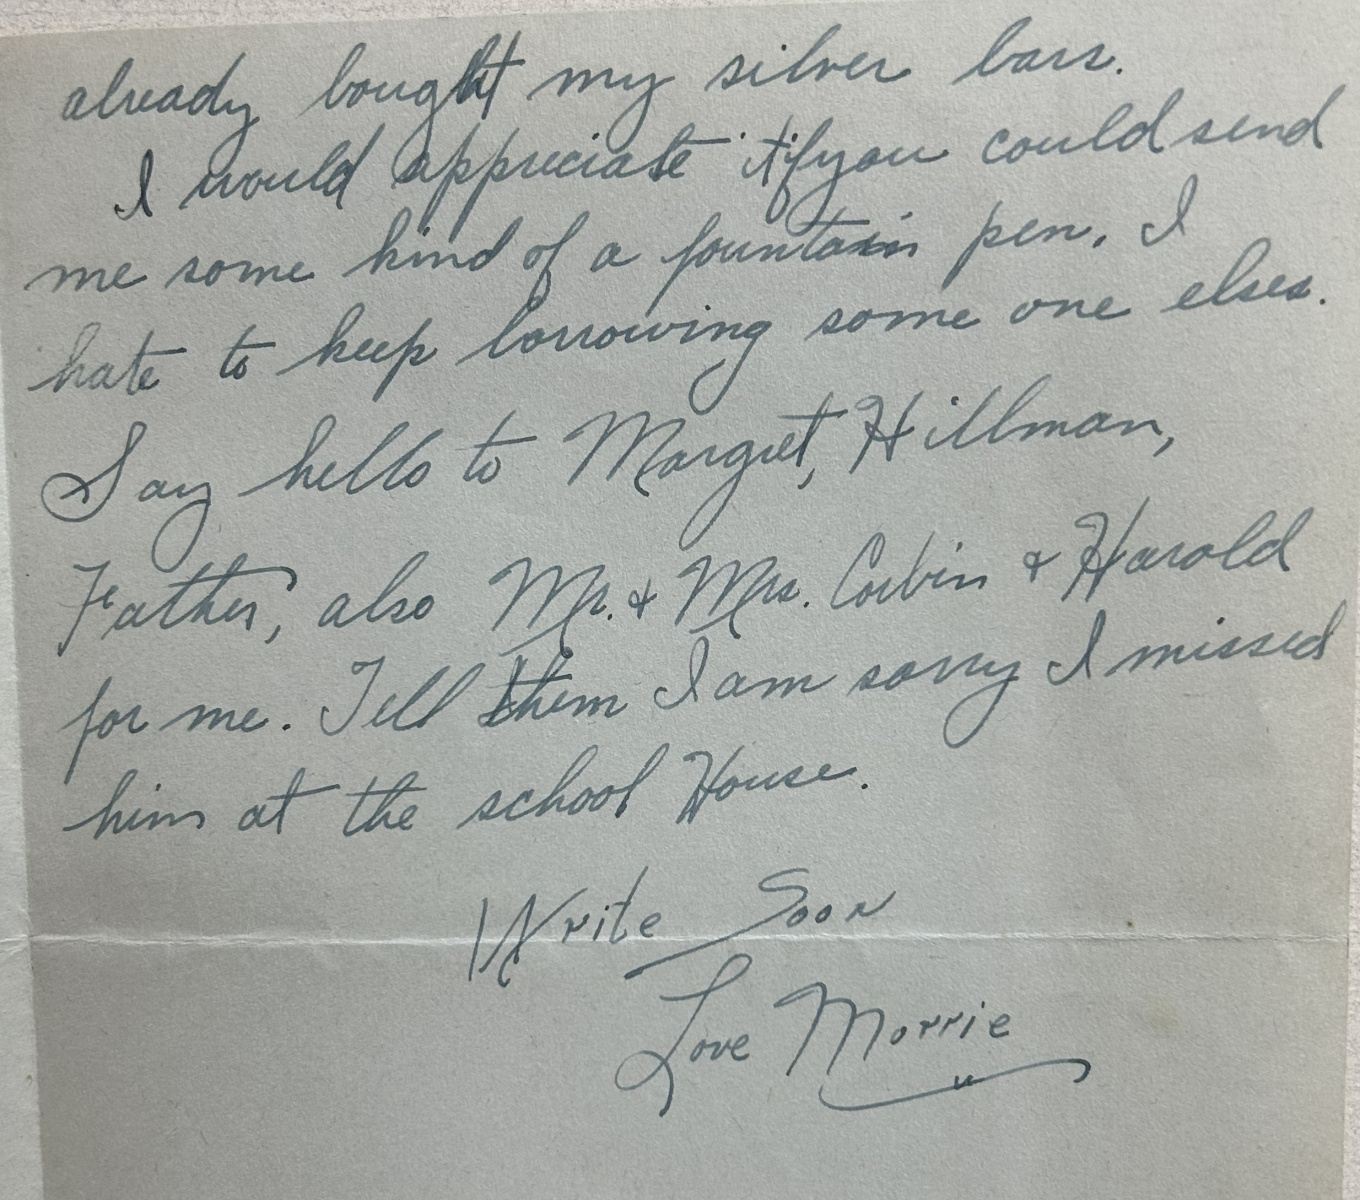 already bought my silver bars.
I would appreciate it if you could send
me some kind of a fountain pen. I
hate to keep borrowing some one elses.
Say hello to Margret, Hillman,
Father, also Mr. & Mrs. Corbin & Harold
for me. Tell them I am sorry I missed
him at the school House.
Write Soon
Love Morrie